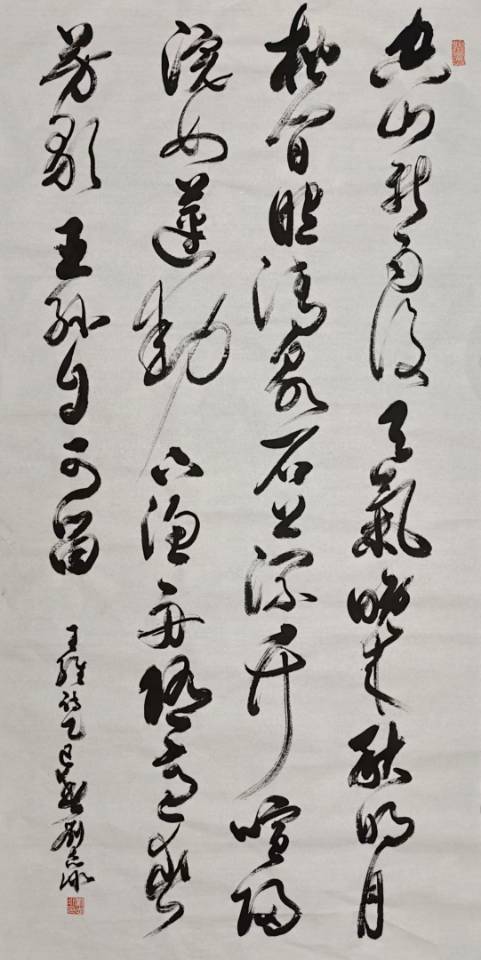 空山新雨後天氣晚來秋明月
松間照清泉石上流竹喧歸
浣女蓮動下漁舟隨意春
芳歇王孫自可留
王維詩乙巳劉